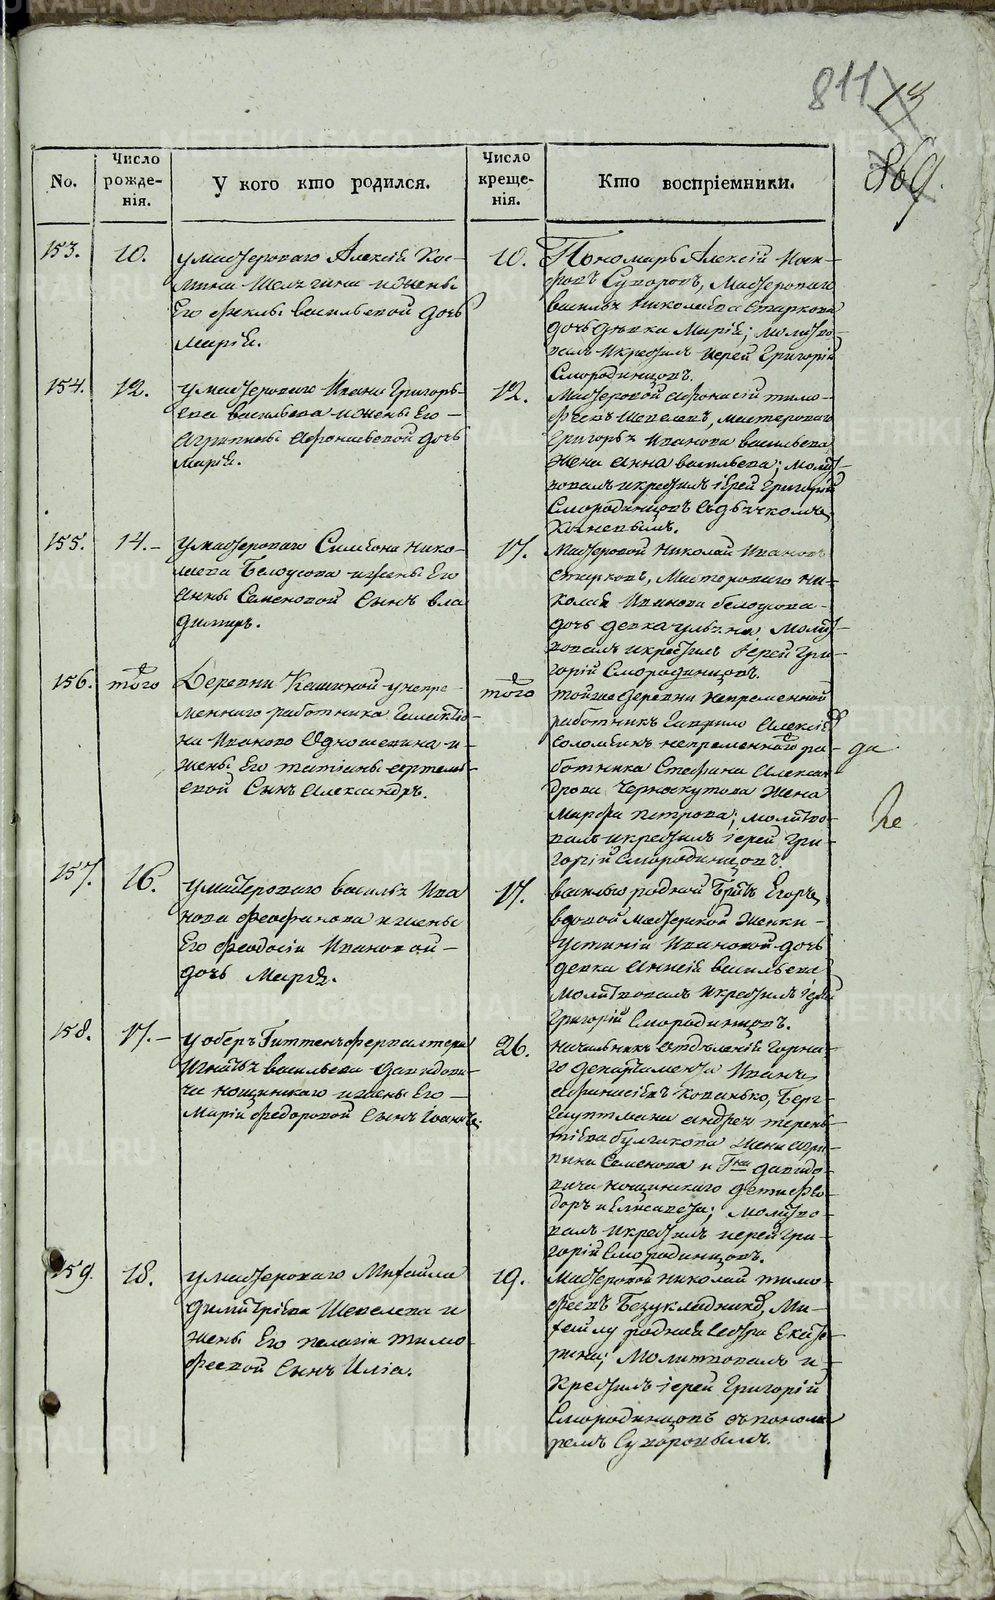 811 13
869.
No.
Число рожденія.
У кого кто родился.
Число крещенія.
Кто воспріемники.
153.
10.
у мастероваго Алексѣя Кос-
мина и жены
Его Феклы Васильевой дочь
Марія.
10.
Пономарь Алексій Ники-
форовъ Суворовъ, Мастероваго
василья Николаева Старкова
дочь дѣвка Марія; молитво-
валъ и крестилъ Іерей Григорій
Смородинцовъ.
154.
12.
у мастероваго Ивана Григорь-
ева васильева и жены Его
Агрипины Афонасьевой дочь
Марія.
12.
Мастеровой Афонасій тимо-
феевъ Шепелевъ, мастероваго
Григорья Иванова васильева
жена Анна васильева; молит-
вовалъ и крестилъ іерей Григорій
Смородинцовъ съ дьячкомъ
155.
14.
у мастероваго Симеона Нико-
лаева Белоусова и жены Его
Анны Семеновой Сынъ вла
димиръ.
17.
Мастеровой Николай Ивановъ
Старковъ, Мастероваго Ни-
колая Иванова белоусова
дочь девка ульяна, Молит-
вовалъ и крестилъ Іерей Гри-
горій Смородинцовъ.
156.
того
Деревни у непре-
меннаго работника Галактіо-
на Иванова и
жены Его татіаны
Сынъ Александръ.
того
тойже деревни непременной
работникъ Гаврило Алексѣевъ
Соломеинъ непременнаго ра-
ботника Стефана Алексан
дрова Черноскутова жена
Марфа петрова; молитво-
валъ и крестилъ іерей Гри-
горій Смородинцовъ.
да
не
157.
16.
у мастероваго василья Ива
нова Феофилова и жены
Его Феодосіи Ивановой
дочь Марія.
17.
василью родной Братъ Егоръ,
вдовой мастерской женки
Устиніи Ивановой дочь
девка Анисія васильева
Молитвовалъ и крестилъ іерей
Григорій Смородинцовъ.
158.
17.
у оберъ Гиттенъ Фервалтера
Игнатья васильева давидови-
ча и жены Его
Маріи Федоровой Сынъ Іоаннъ.
26.
Начальникъ Отдѣленія Горна-
го департамента Иванъ
Афанасіевъ Кованько, Берг-
гауптмана Андрея терень-
тіева булгакова жена Агри-
пина Семенова и Гна давидо-
вича дети Фео-
доръ и Елисавета; молитво-
валъ и крестилъ іерей Гри-
горій Смородинцовъ.
159.
18.
у мастероваго Михаила
димитріева Шепелева и
жены Его пелагіи тимо
феевой Сынъ Иліа.
19.
Мастеровой Николай тимо-
феевъ Безукладниковъ, Ми-
хаилу родная Сестра Екате-
рина; Молитвовалъ и
Крестилъ іерей Григорій
Смородинцовъ съ понома
ремъ Суворовымъ.